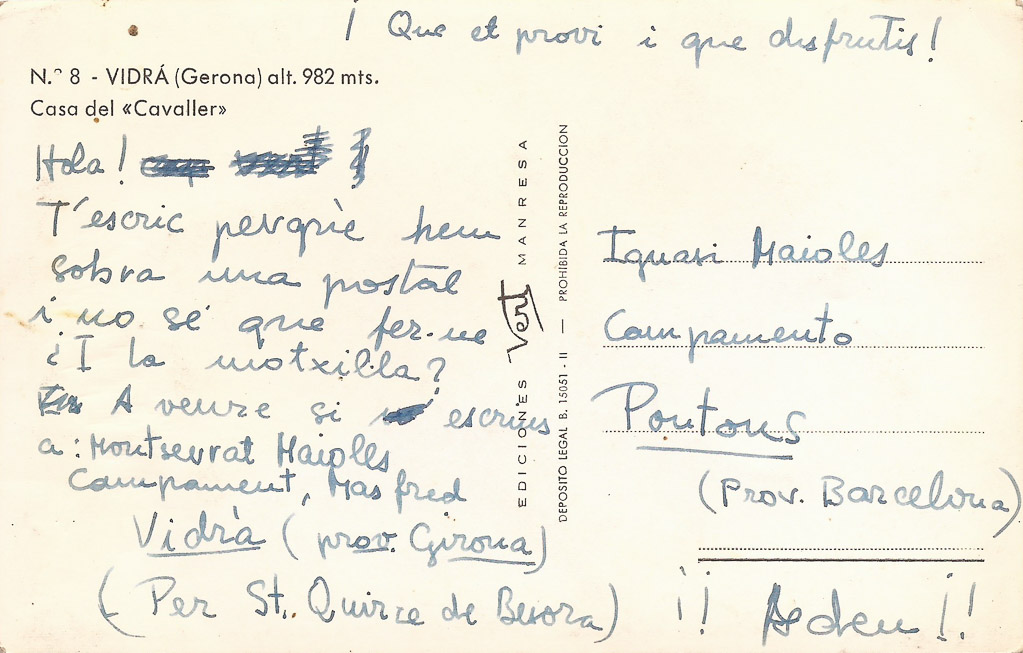 ¡ Que et provi i que disfrutis!
N.º 8 - VIDRÁ (Gerona) alt. 982 mts.
Casa del «Cavaller»
Hola!
T'escric perquè hem
sobra una postal
i no sé que fer-ne
¿I la motxilla?
A veure si escrius
a: Montserrat Maiolles
Campament, Mas fred
Vidrà (prov. Girona)
(Per St. Quirze de Besora)
EDICIONES Vert MANRESA
DEPOSITO LEGAL B. 15051 - II — PROHIBIDA LA REPRODUCCION
Ignasi Maiolles
Campamento
Pontons
(Prov. Barcelona)
¡¡ Adeu !!